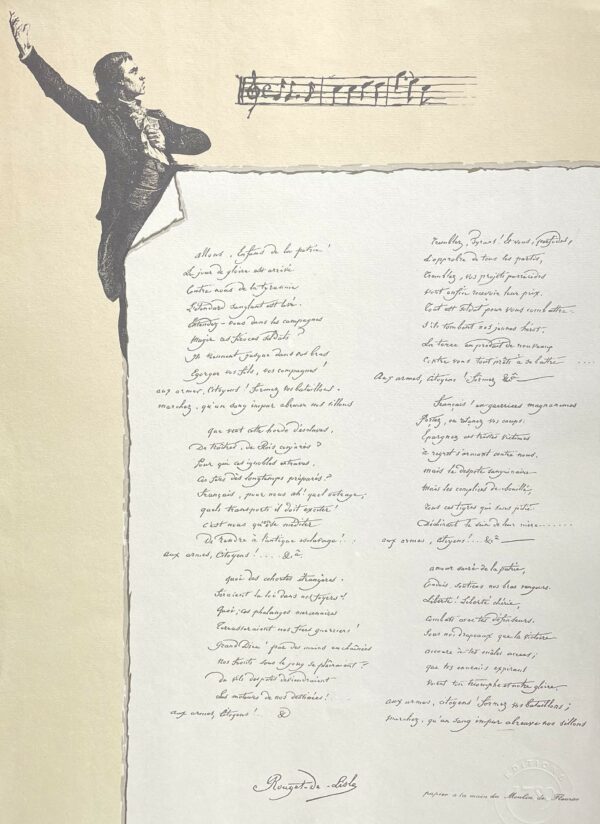 allons, Enfans de la patrie!
Le jour de gloire est arrivé
Contre nous de la tyrannie
L'étendard sanglant est levé.
Entendez-vous dans les campagnes
Mugir ces féroces soldats?
Ils viennent jusque dans vos bras
Egorger vos fils, vos compagnes!
aux armes, Citoyens! formez vos bataillons.
marchez, qu'un sang impur abreuve nos sillons
que veut cette horde d'esclaves,
De traîtres, de Rois conjurés?
Pour qui ces ignobles entraves,
Ces fers dès longtemps préparés?
Français, pour nous ah! quel outrage,
quels transports il doit exciter!
c'est nous qu'on ose méditer
De rendre à l'antique esclavage!..
aux armes, Citoyens!.... &a
quoi des cohortes étrangères.
Feraient la loi dans nos foyers!
Quoi, ces phalanges mercenaires
Terrasseraient nos fiers guerriers!
Grand Dieu! par des mains enchaînées
nos fronts sous le joug se ploiraient?
de vils despotes deviendraient
Les maîtres de nos destinées!
aux armes, Citoyens!.. &
Tremblez, Tyrans! Et vous, perfides,
L'opprobre de tous les partis,
Tremblez, vos projets parricides
vont enfin recevoir leur prix.
Tout est soldat pour vous combattre.
S'ils tombent nos jeunes héros,
La terre en produit de nouveaux
Contre vous tout prêts à se battre ....
Aux armes, Citoyens! formez &a
Français! en guerriers magnanimes
Portez, ou retenez vos coups.
Épargnez ces tristes victimes
à regret s'armant contre nous.
mais le despote sanguinaire
mais les complices de bouillé,
tous ces tigres qui sans pitié
Déchirent le sein de leur mère......
aux armes, Citoyens!.. &a
amour sacré de la patrie,
Conduis, soutiens nos bras vengeurs.
Liberté! Liberté chérie,
Combats avec tes défenseurs.
Sous nos drapeaux que la victoire
accoure à tes mâles accens;
que tes ennemis expirant
voient ton triomphe et notre gloire.
aux armes, citoyens! formez vos bataillons;
marchez, qu'un sang impur abreuve nos sillons
Rouget-de-Lisle
papier a la main du Moulin de Fleurac